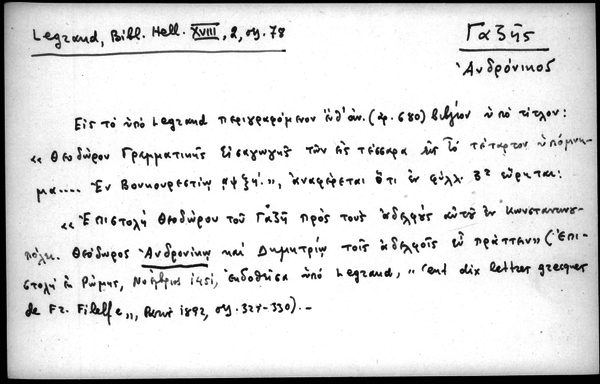 Legrand, Bibl. Hell. XVIII, 2, σγ. 78
Γαζῆς
Ἀνδρόνικος
Εἰς τὸ ὑπὸ Legrand περιγραφόμενον (ἀρ. 680) βιβλίον ὑπὸ τίτλον:
«Θεοδώρου Γραμματικῆς εἰσαγωγῆς τῶν εἰς τέσσαρα εἰς τὸ τέταρτον ὑπόμνη-
μα.... Ἐν Βουκουρεστίῳ αψξή.», ἀναφέρεται ὅτι ἐν φύλλ. εὕρηται:
«Ἐπιστολὴ Θεοδώρου τοῦ Γαζῆ πρὸς τοὺς ἀδελφοὺς αὐτοῦ ἐν Κωνσταντινου-
πόλει. Θεόδωρος Ἀνδρονίκῳ καὶ Δημητρίῳ τοῖς ἀδελφοῖς εὖ πράττειν» (Ἐπι-
στολὴ ἐκ Ρώμης, Νοέμβριος 1451, ἐκδοθεῖσα ὑπὸ Legrand, "Cent dix lettres grecques
de Fr. Filelfe", Paris 1892, σγ. 327-330).-